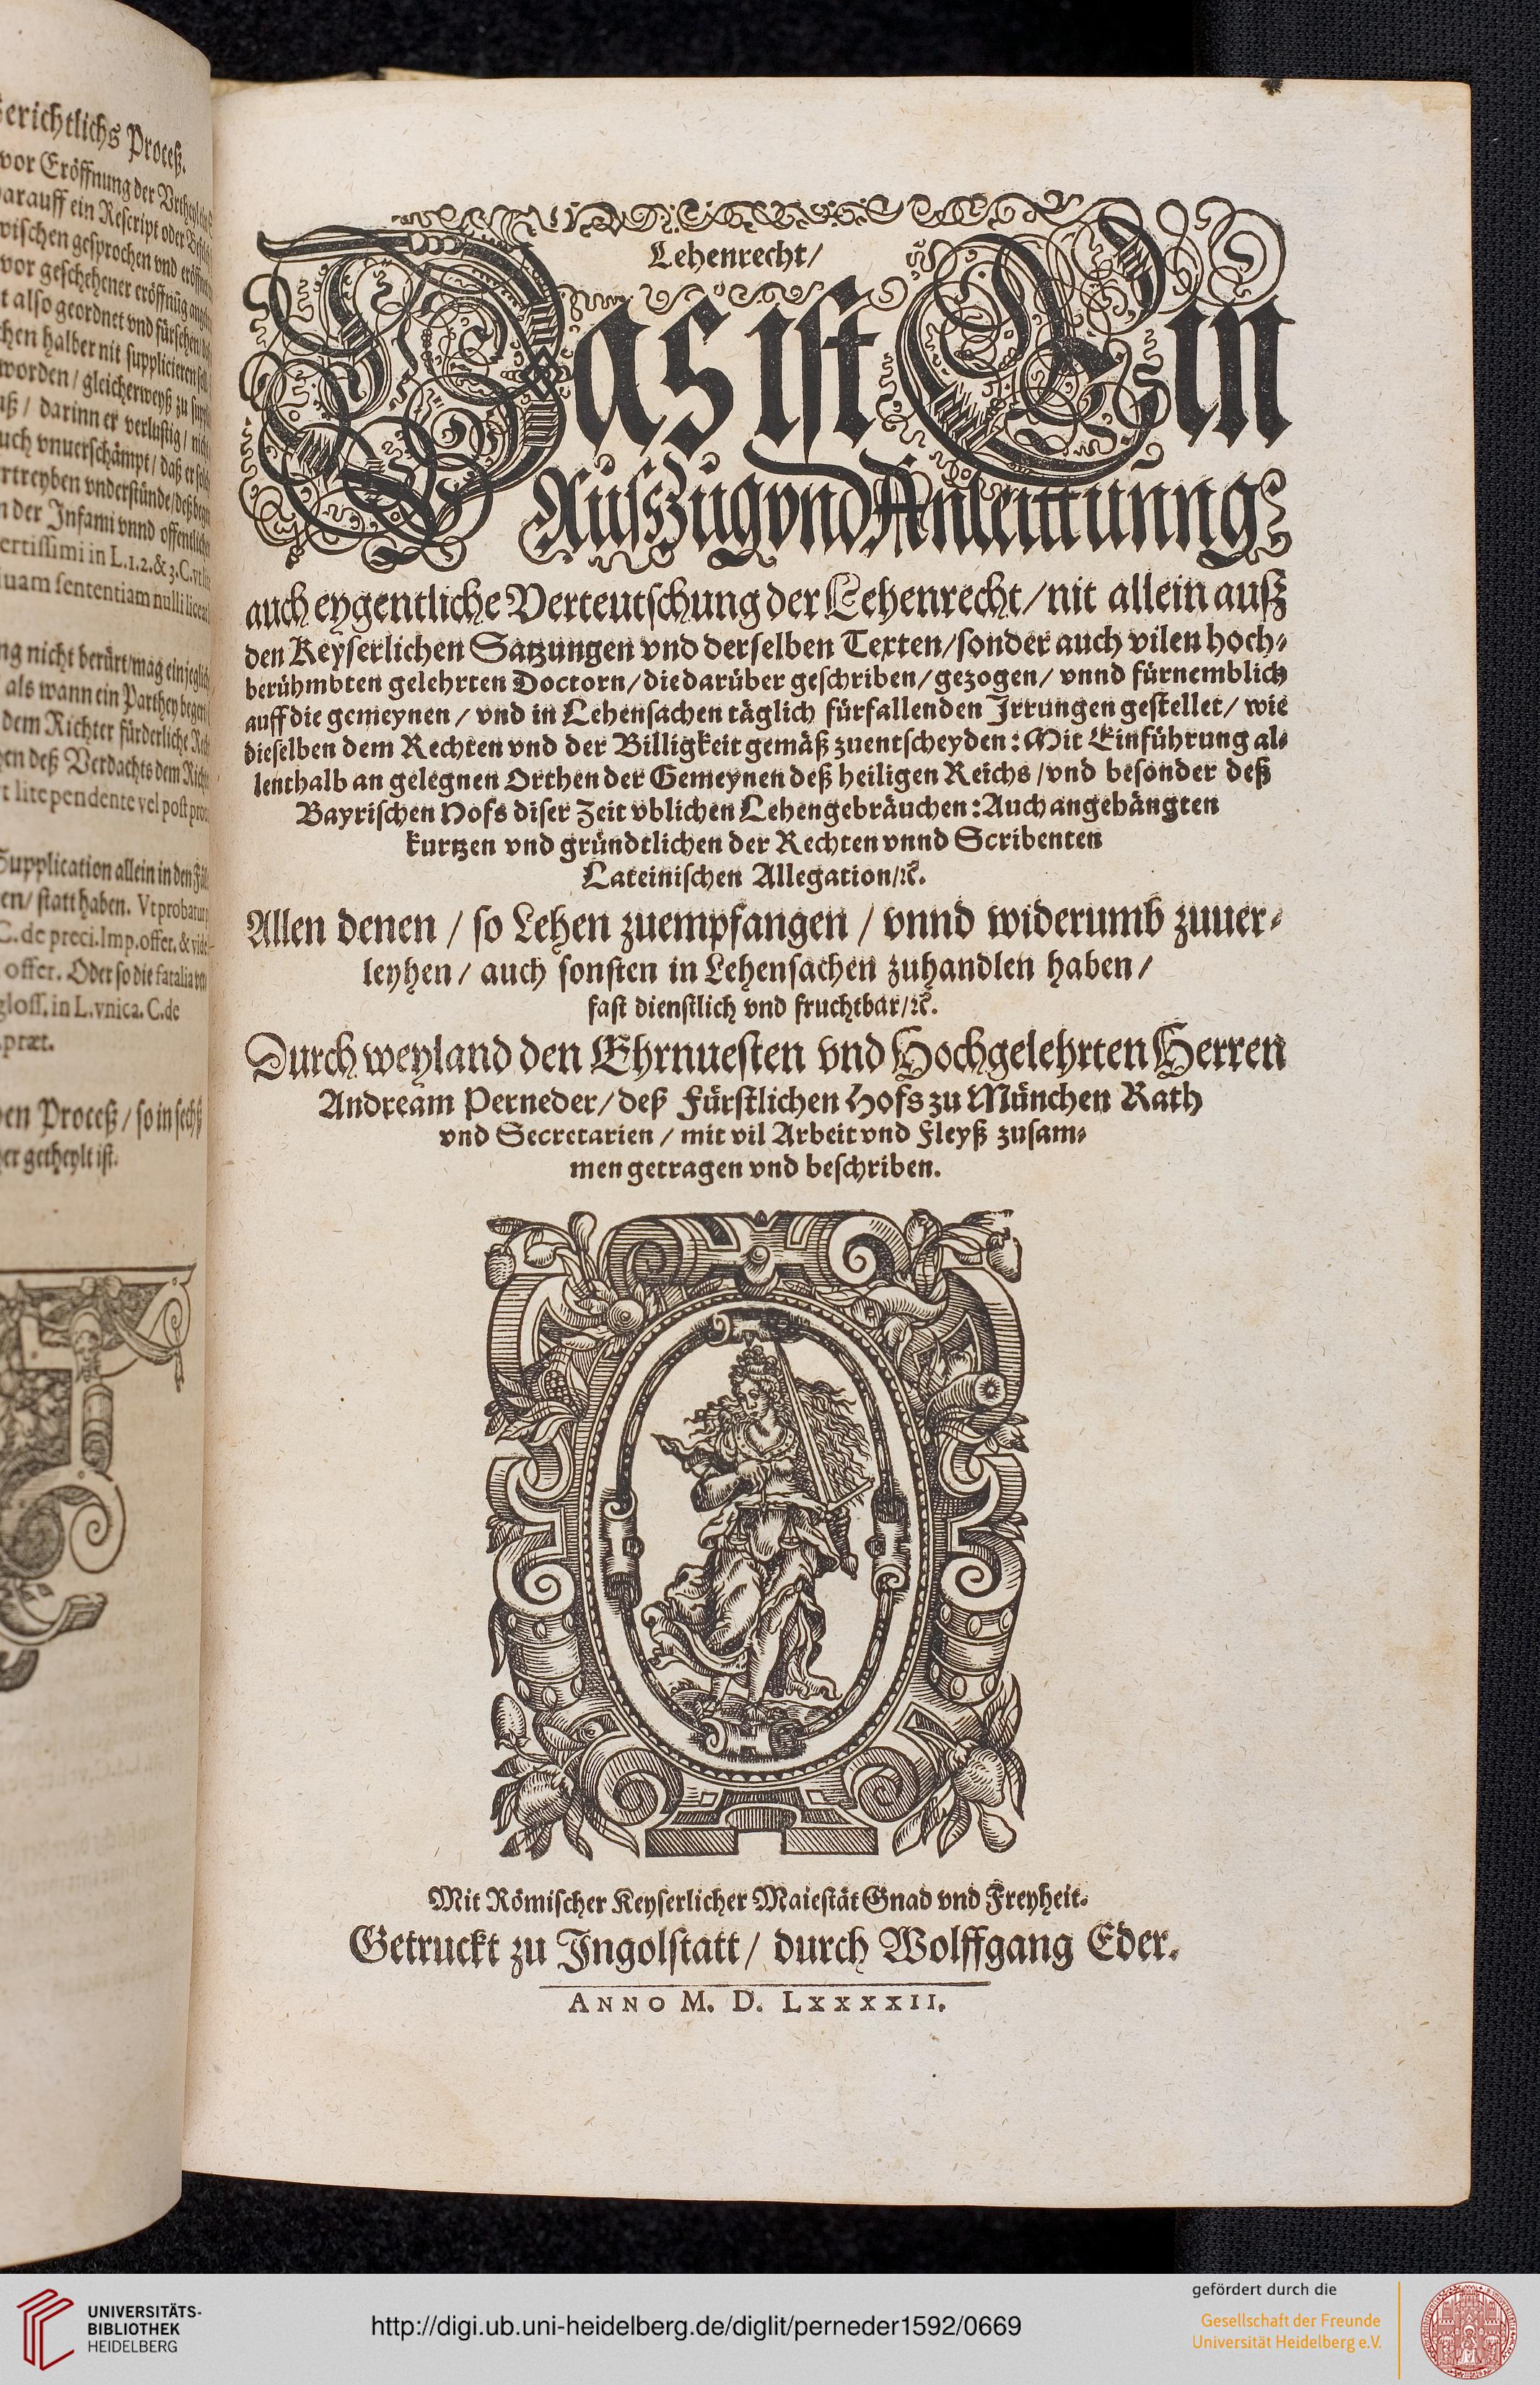 erichtlichs Proceß.
vor Eröffnung der
arauff ein Rescript oder
wischen gesprochen vnd
vor geschehener eröffnūg
t also geordnet vnd fürsehen
chen halber nit supplicieren
worden / gleicherweyß zu
uß / darinn er verlustig /
uch vnuerschämpt / daß er
rtreyben vnderstünde
n der Infami vnnd offentlich
ertissimi in L.1.2.&3.C.
uam sententiam nulli
ng nicht berürt/mag
als wann ein Parthey
dem Richter fürderliche
en deß Verdachts dem
t lite pendente vel post
Supplication allein in den
en/ statt haben. Vt probatur
C.de preci.Imp.offer. &
offer. Oder so die fatalia
gloss. in L.vnica. C.de
præt.
en Proceß / so in sechß
er getheylt ist.
Lehenrecht/
Das ist Ein
Auszug vnd Anleittunng
auch eygentliche Verteutschung der Lehenrecht/ nit allein auß
den Keyserlichen Satzungen vnd derselben Texten/ sonder auch vilen hoch-
berühmbten gelehrten Doctorn/ die darüber geschriben/ gezogen/ vnnd fürnemblich
auff die gemeynen / vnd in Lehensachen täglich fürfallenden Irrungen gestellet/ wie
dieselben dem Rechten vnd der Billigkeit gemäß zuentscheyden: Mit Einführung al-
lenthalb an gelegnen Orthen der Gemeynen deß heiligen Reichs / vnd besonder deß
Bayrischen Hofs diser Zeit vblichen Lehengebräuchen: Auch angehängten
kurtzen vnd gründtlichen der Rechten vnnd Scribenten
Lateinischen Allegation/ꝛc.
Allen denen / so Lehen zuempfangen / vnnd widerumb zuuer-
leyhen/ auch sonsten in Lehensachen zuhandlen haben/
fast dienstlich vnd fruchtbar/ꝛc.
Durch weyland den Ehrnuesten vnd Hochgelehrten Herren
Andream Perneder/ deß Fürstlichen Hofs zu München Rath
vnd Secretarien / mit vil Arbeit vnd Fleyß zusam-
men getragen vnd beschriben.
Mit Römischer Keyserlicher Maiestät Gnad vnd Freyheit.
Getruckt zu Ingolstatt/ durch Wolffgang Eder.
ANNO M. D. LXXXXII.
UNIVERSITÄTS-
BIBLIOTHEK
HEIDELBERG
http://digi.ub.uni-heidelberg.de/diglit/perneder1592/0669
gefördert durch die
Gesellschaft der Freunde
Universität Heidelberg e.V.